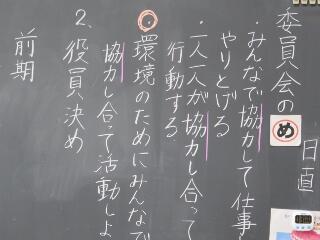 日直
委員会の
め
・みんなで協力して仕事
やりとげる
・一人一人が協力し合って
行動する
・環境のためにみんなで
協力し合って活動しよ
2、役員決め
前期